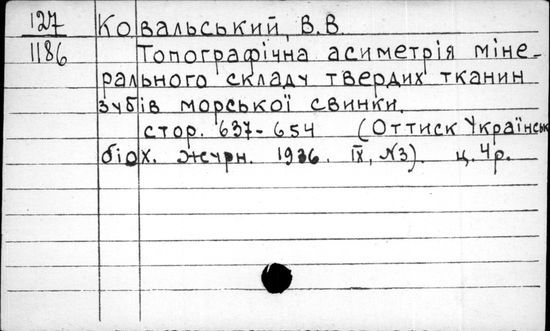 127 Ковальський, В.В.
1186 Топографічна асиметрія міне-
рального складу твердих тканин
зубів морської свинки.
стор. 637-654 (Оттиск Українськ
біох. журн. 1936. IX, №3). ц. 4р.